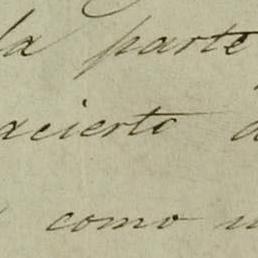 la parte
acierto
como